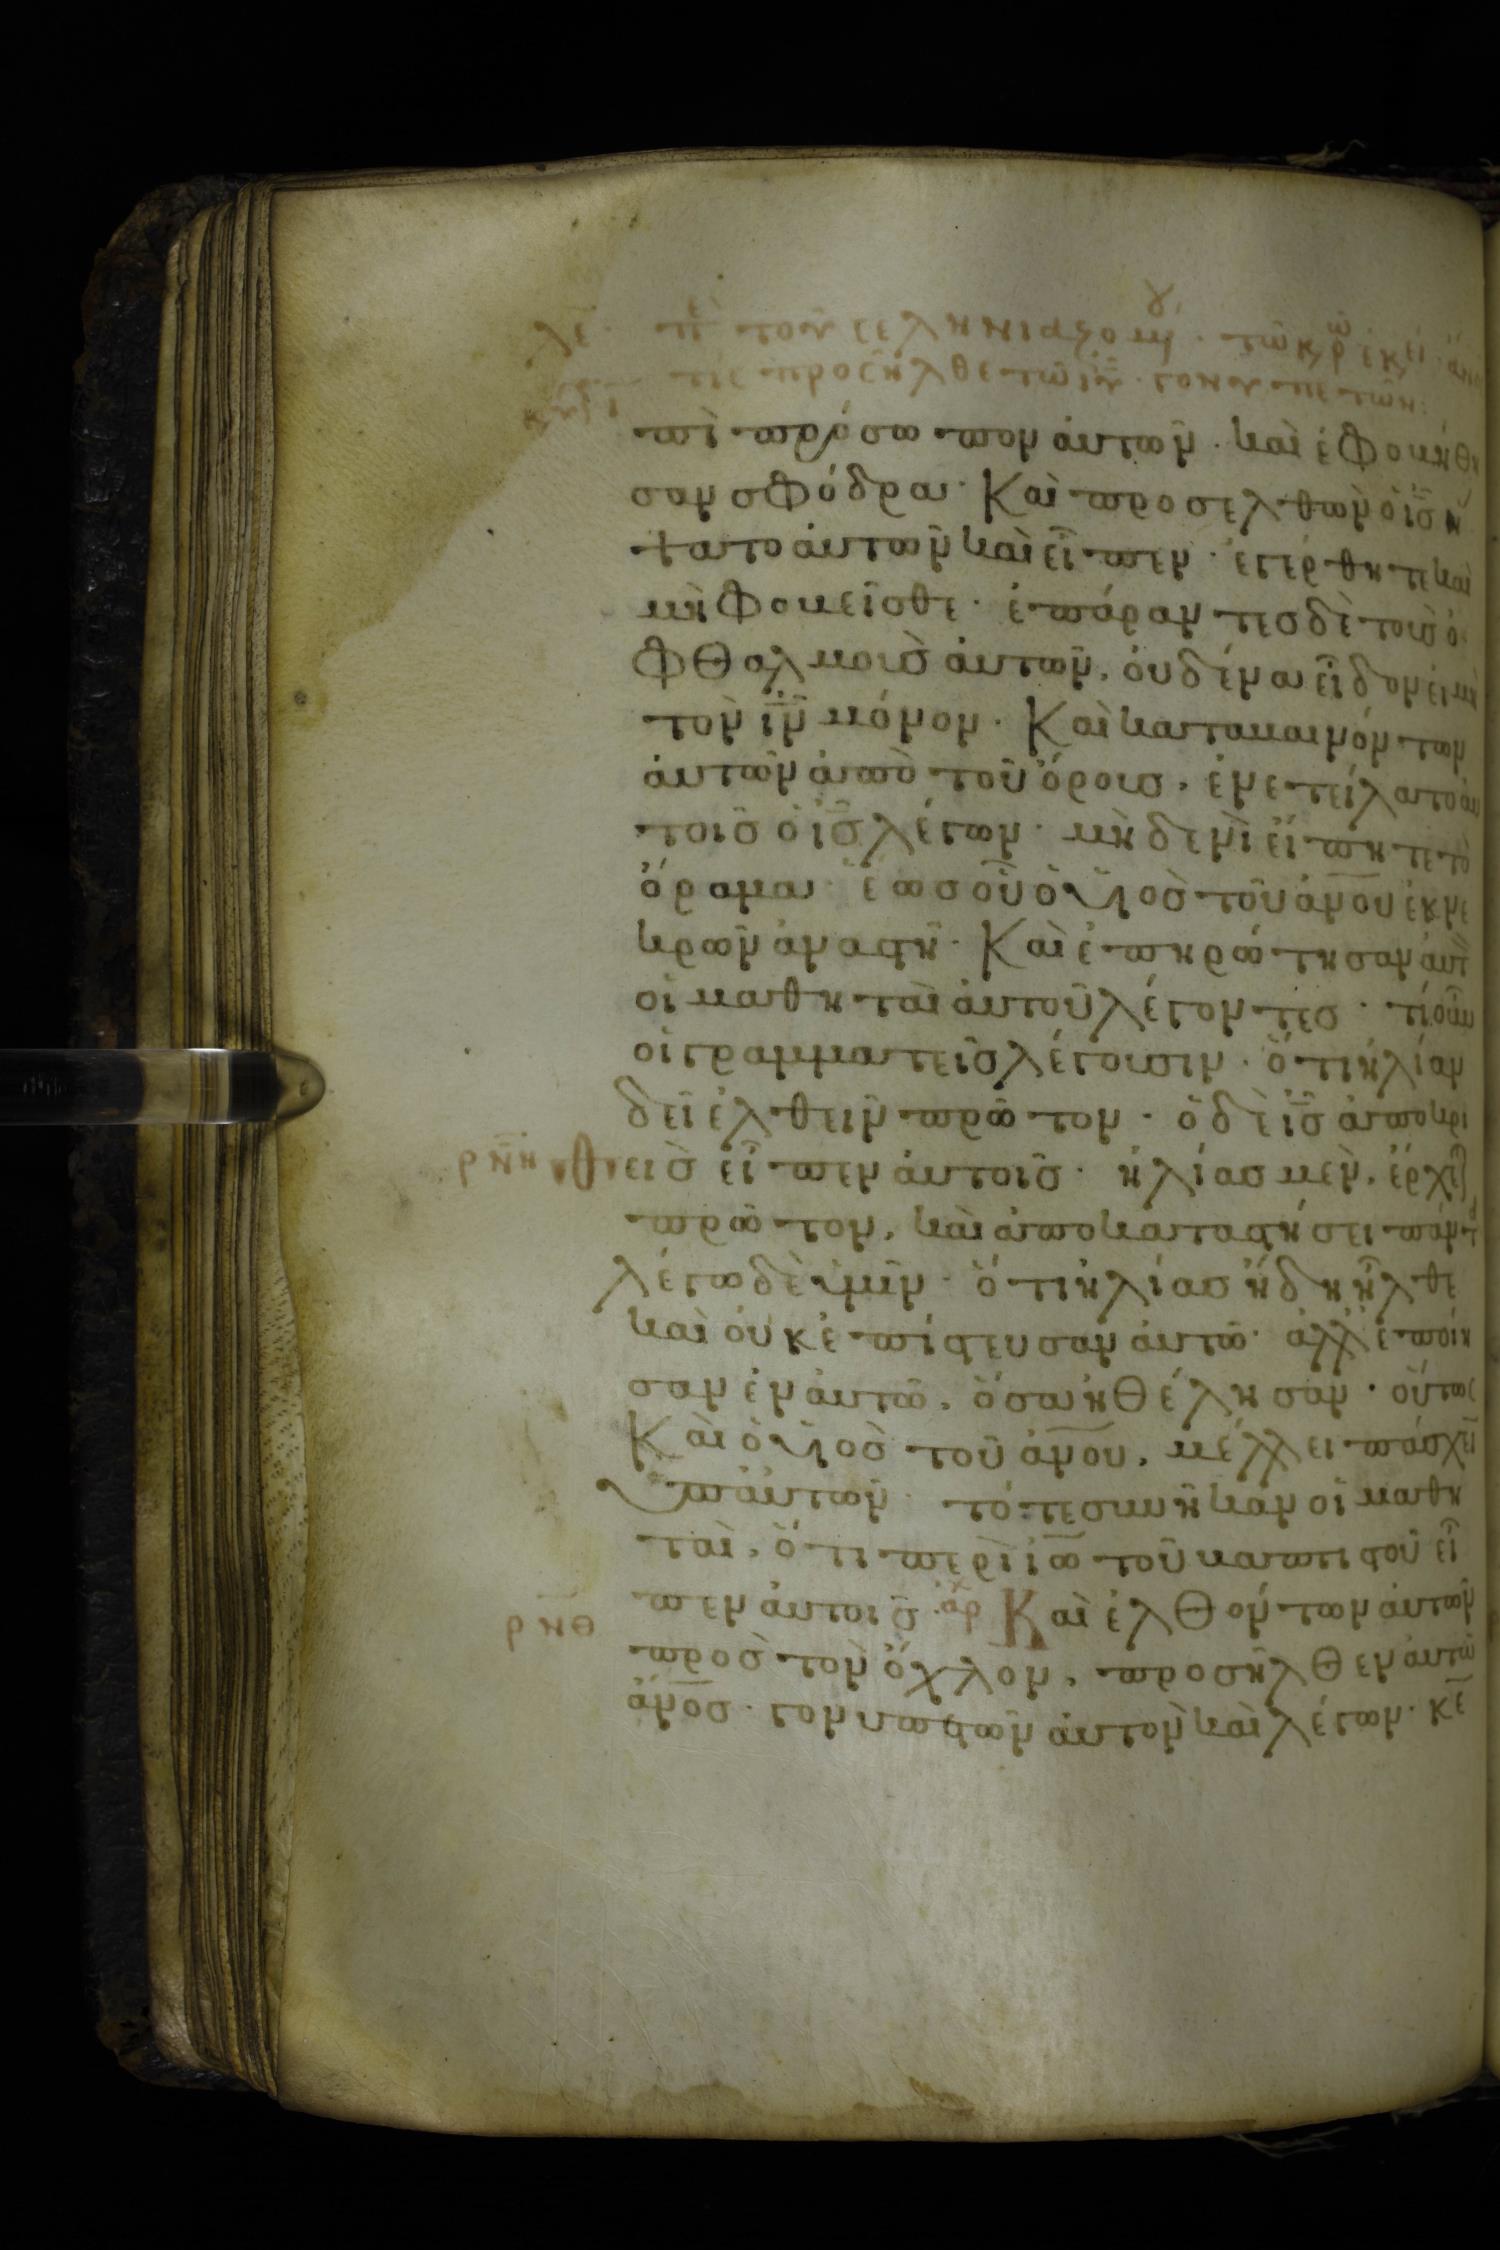 λε περὶ τοῦ σεληνιαζομένου
τις προσῆλθε τῶ ιυ γονυπετῶν
πὶ πρόσωπον ἀυτῶν· καὶ ἐφοβήθη
σαν σφόδρα· Και προσελθὼν ὁ ις ἥ
ψατο ἀυτῶν καὶ εἶπεν· ἐγέρθητε καὶ
μὴ φοβεῖσθε· ἐπάραντες δὲ τοὺς ὀ
φθαλμοὺς ἀυτῶν, ὀυδένα εἶδον εἰ μὴ
τὸν ιν μόνον· Καὶ καταβαινόντων
ἀυτῶν ἀπὸ τοῦ ὄρους, ἐνετείλατο ἀυ
τοῖς ὁ ις λέγων· μηδενὶ εἴπητε τὸ
ὅραμα ἕως οὗ ὁ υἱὸς τοῦ ανου ἐκ νε
κρῶν ἀναστῆ· Καὶ ἐπηρώτησαν ἀυτὸν
οἱ μαθηταὶ ἀυτοῦ λέγοντες· τί οὖν
οἱ γραμματεῖς λέγουσιν· ὅτι ἠλίαν
δεῖ ἐλθεῖν πρῶτον· ὁ δὲ ις ἀποκρι
ρνη θεὶς εἶπεν ἀυτοῖς· ἠλίας μὲν, ἔρχεται
πρῶτον, καὶ ἀποκαταστήσει πάντα
λέγω δὲ ὑμῖν· ὅτι ἠλίας ἤδη ἦλθε
καὶ ὀυκ ἐπίστευσαν ἀυτῶ· ἀλλ' ἐποίη
σαν ἐν ἀυτῶ, ὅσα ἠθέλησαν· οὕτως
Καὶ ὁ υἱὸς τοῦ ανου, μέλλει πάσχειν
ὑπ' ἀυτῶν· τότε συνῆκαν οἱ μαθη
ταὶ, ὅτι περὶ ιω τοῦ βαπτιστοῦ εἶ
ρνθ πεν ἀυτοῖς· αρχ Καὶ ἐλθόντων ἀυτῶν
πρὸς τὸν ὄχλον, προσῆλθεν ἀυτῶ
ανος· γονυπετῶν ἀυτὸν καὶ λέγων· κε